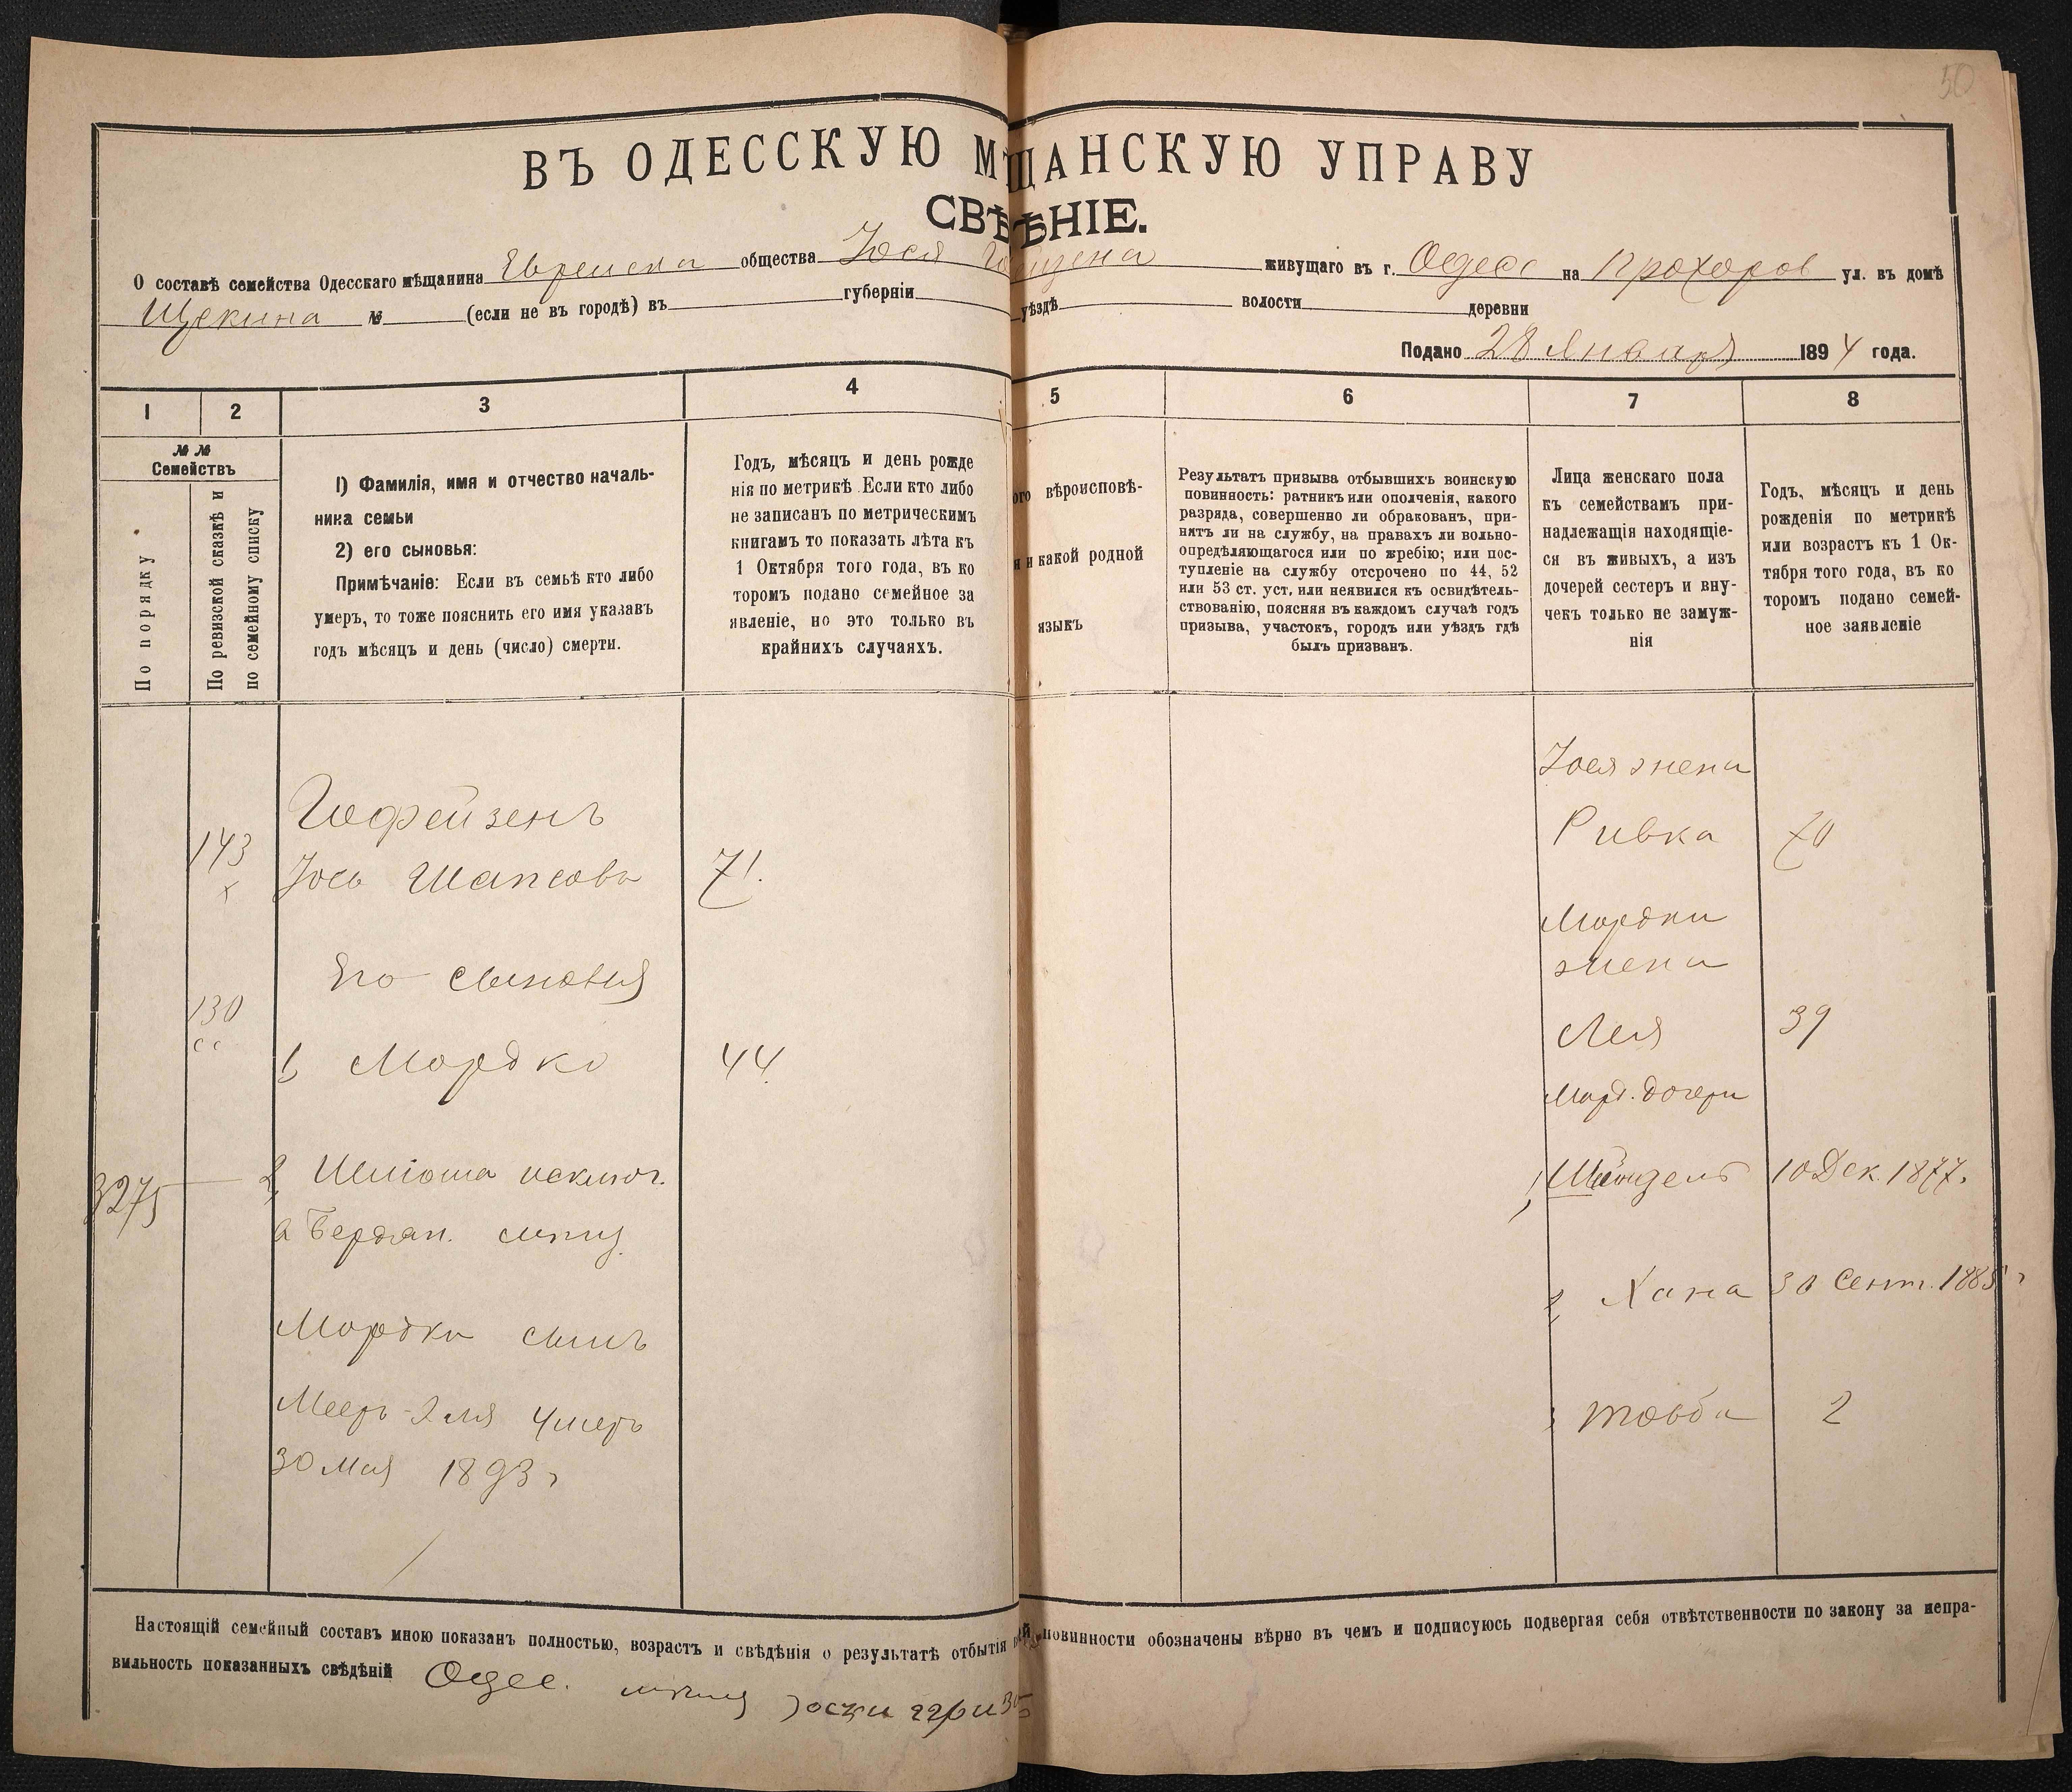 50
ВЪ ОДЕССКУЮ МЩАНСКУЮ УПРАВУ
СВѢѢНІЕ.
О составѣ семейства Одесскаго мѣщанина Еврейска общества Іося живущаго въ г. Одесс на Прохоров ул. въ домѣ
Щекина № (если не въ городѣ) въ губерніи уѣздѣ волости деревни
Подано 28 Января 1894 года.
1 2 3 4 5 6 7 8
№ №
Семействъ
По порядку
По ревизской сказкѣ и
по семейному списку
1) Фамилія, имя и отчество началь-
ника семьи
2) его сыновья:
Примѣчаніе: Если въ семьѣ кто либо
умеръ, то тоже пояснить его имя указавъ
годъ мѣсяцъ и день (число) смерти.
Годъ, мѣсяцъ и день рожде
нія по метрикѣ Если кто либо
не записанъ по метрическимъ
книгамъ то показать лѣта къ
1 Октября того года, въ ко
торомъ подано семейное за
явленіе, но это только въ
крайнихъ случаяхъ.
ого вѣроисповѣ-
и какой родной
языкъ
Результатъ призыва отбывшихъ воинскую
повинность: ратникъ или ополченія, какого
разряда, совершенно ли обракованъ, при-
нятъ ли на службу, на правахъ ли вольно-
опредѣляющагося или по жребію; или пос-
тупленіе на службу отсрочено по 44, 52
или 53 ст. уст, или неявился къ освидѣтель-
ствованію, поясняя въ каждомъ случаѣ годъ
призыва, участокъ, городъ или уѣздъ гдѣ
былъ призванъ.
Лица женскаго пола
къ семействамъ при-
надлежащія находящіе-
ся въ живыхъ, а изъ
дочерей сестеръ и вну-
чекъ только не замуж-
нія
Годъ, мѣсяцъ и день
рожденія по метрикѣ
или возрастъ къ 1 Ок-
тября того года, въ ко
торомъ подано семей-
ное заявленіе
Іося жена
Гофейзенъ
143 Іось Шапсовъ 71.
х
Ривка 70
Мордки
жена
Его сыновья
130
Лея 39
1, Мордко 44
Морд. дочери
3275 2, Шліома исключ.
в Бердян. мѣщ.
1, Шейндель 10 Дек. 1877.
2, Хана 30 Сент. 1885 г
Мордки сынъ
Мееръ-Эля умеръ
30 Мая 1893 г
3 Товба 2
Настоящій семейный составъ мною показанъ полностью, возрастъ и свѣдѣнія о результатѣ отбытія повинности обозначены вѣрно въ чемъ и подписуюсь подвергая себя отвѣтственности по закону за непра-
вильность показанныхъ свѣдѣній Одес.